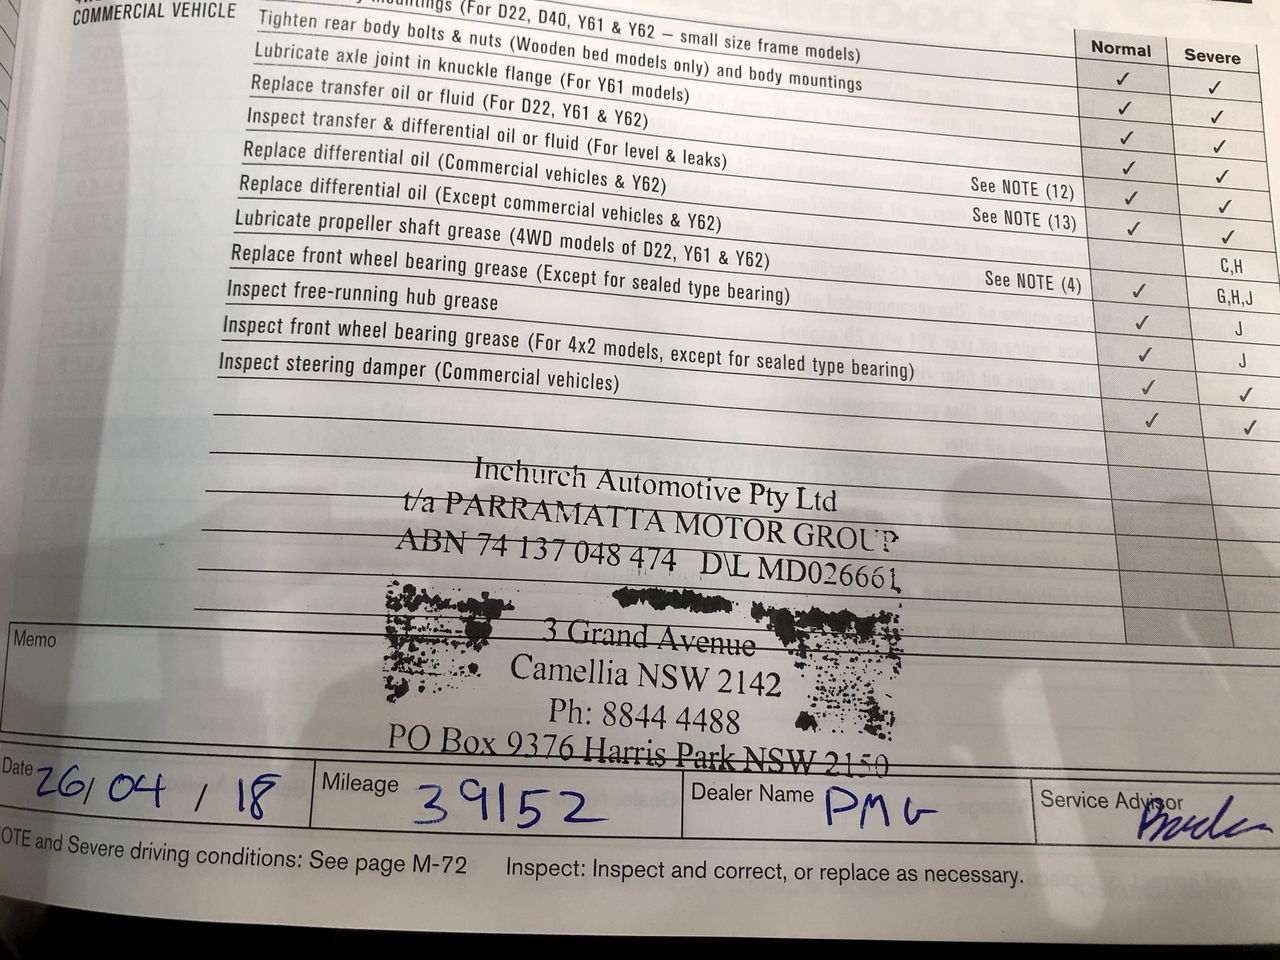 COMMERCIAL VEHICLE
mountings (For D22, D40, Y61 & Y62 – small size frame models)
Normal Severe
Tighten rear body bolts & nuts (Wooden bed models only) and body mountings ✓ ✓
Lubricate axle joint in knuckle flange (For Y61 models) ✓ ✓
Replace transfer oil or fluid (For D22, Y61 & Y62) ✓ ✓
Inspect transfer & differential oil or fluid (For level & leaks) ✓ ✓
Replace differential oil (Commercial vehicles & Y62) See NOTE (12) ✓ ✓
Replace differential oil (Except commercial vehicles & Y62) See NOTE (13) ✓ ✓
Lubricate propeller shaft grease (4WD models of D22, Y61 & Y62) C,H
Replace front wheel bearing grease (Except for sealed type bearing) See NOTE (4) ✓ G,H,J
Inspect free-running hub grease ✓ J
Inspect front wheel bearing grease (For 4x2 models, except for sealed type bearing) ✓ J
Inspect steering damper (Commercial vehicles) ✓ ✓
✓ ✓
Inchurch Automotive Pty Ltd
t/a PARRAMATTA MOTOR GROUP
ABN 74 137 048 474 D\L MD026661
3 Grand Avenue
Camellia NSW 2142
Ph: 8844 4488
PO Box 9376 Harris Park NSW 2150
Memo
Date 26/04/18 Mileage 39152 Dealer Name PMG Service Advisor
OTE and Severe driving conditions: See page M-72 Inspect: Inspect and correct, or replace as necessary.